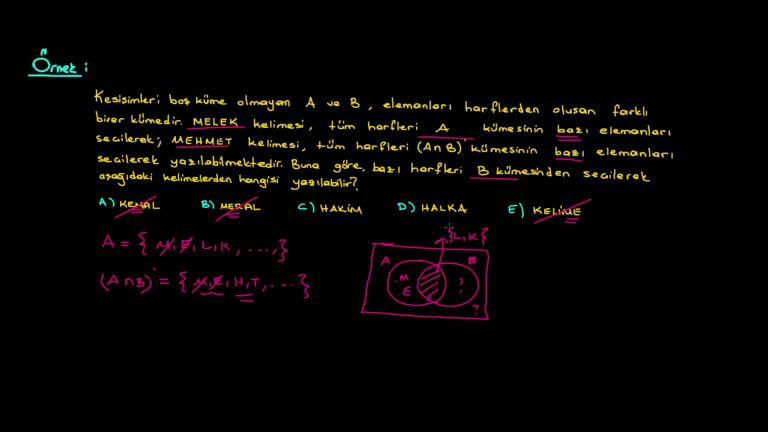 Örnek:
Kesişimleri boş küme olmayan A ve B, elemanları harflerden oluşan farklı
birer kümedir. MELEK kelimesi, tüm harfleri A kümesinin bazı elemanları
seçilerek; MEHMET kelimesi, tüm harfleri (A∩B)' kümesinin bazı elemanları
seçilerek yazılabilmektedir. Buna göre, bazı harfleri B kümesinden seçilerek
aşağıdaki kelimelerden hangisi yazılabilir?
A) KEMAL B) MERAL C) HAKİM D) HALKA E) KELİME
{L,K}
A = { M,E,L,K, ...,}
(A∩B)' = { M,E,H,T, ...}
A B
M
E ?
?